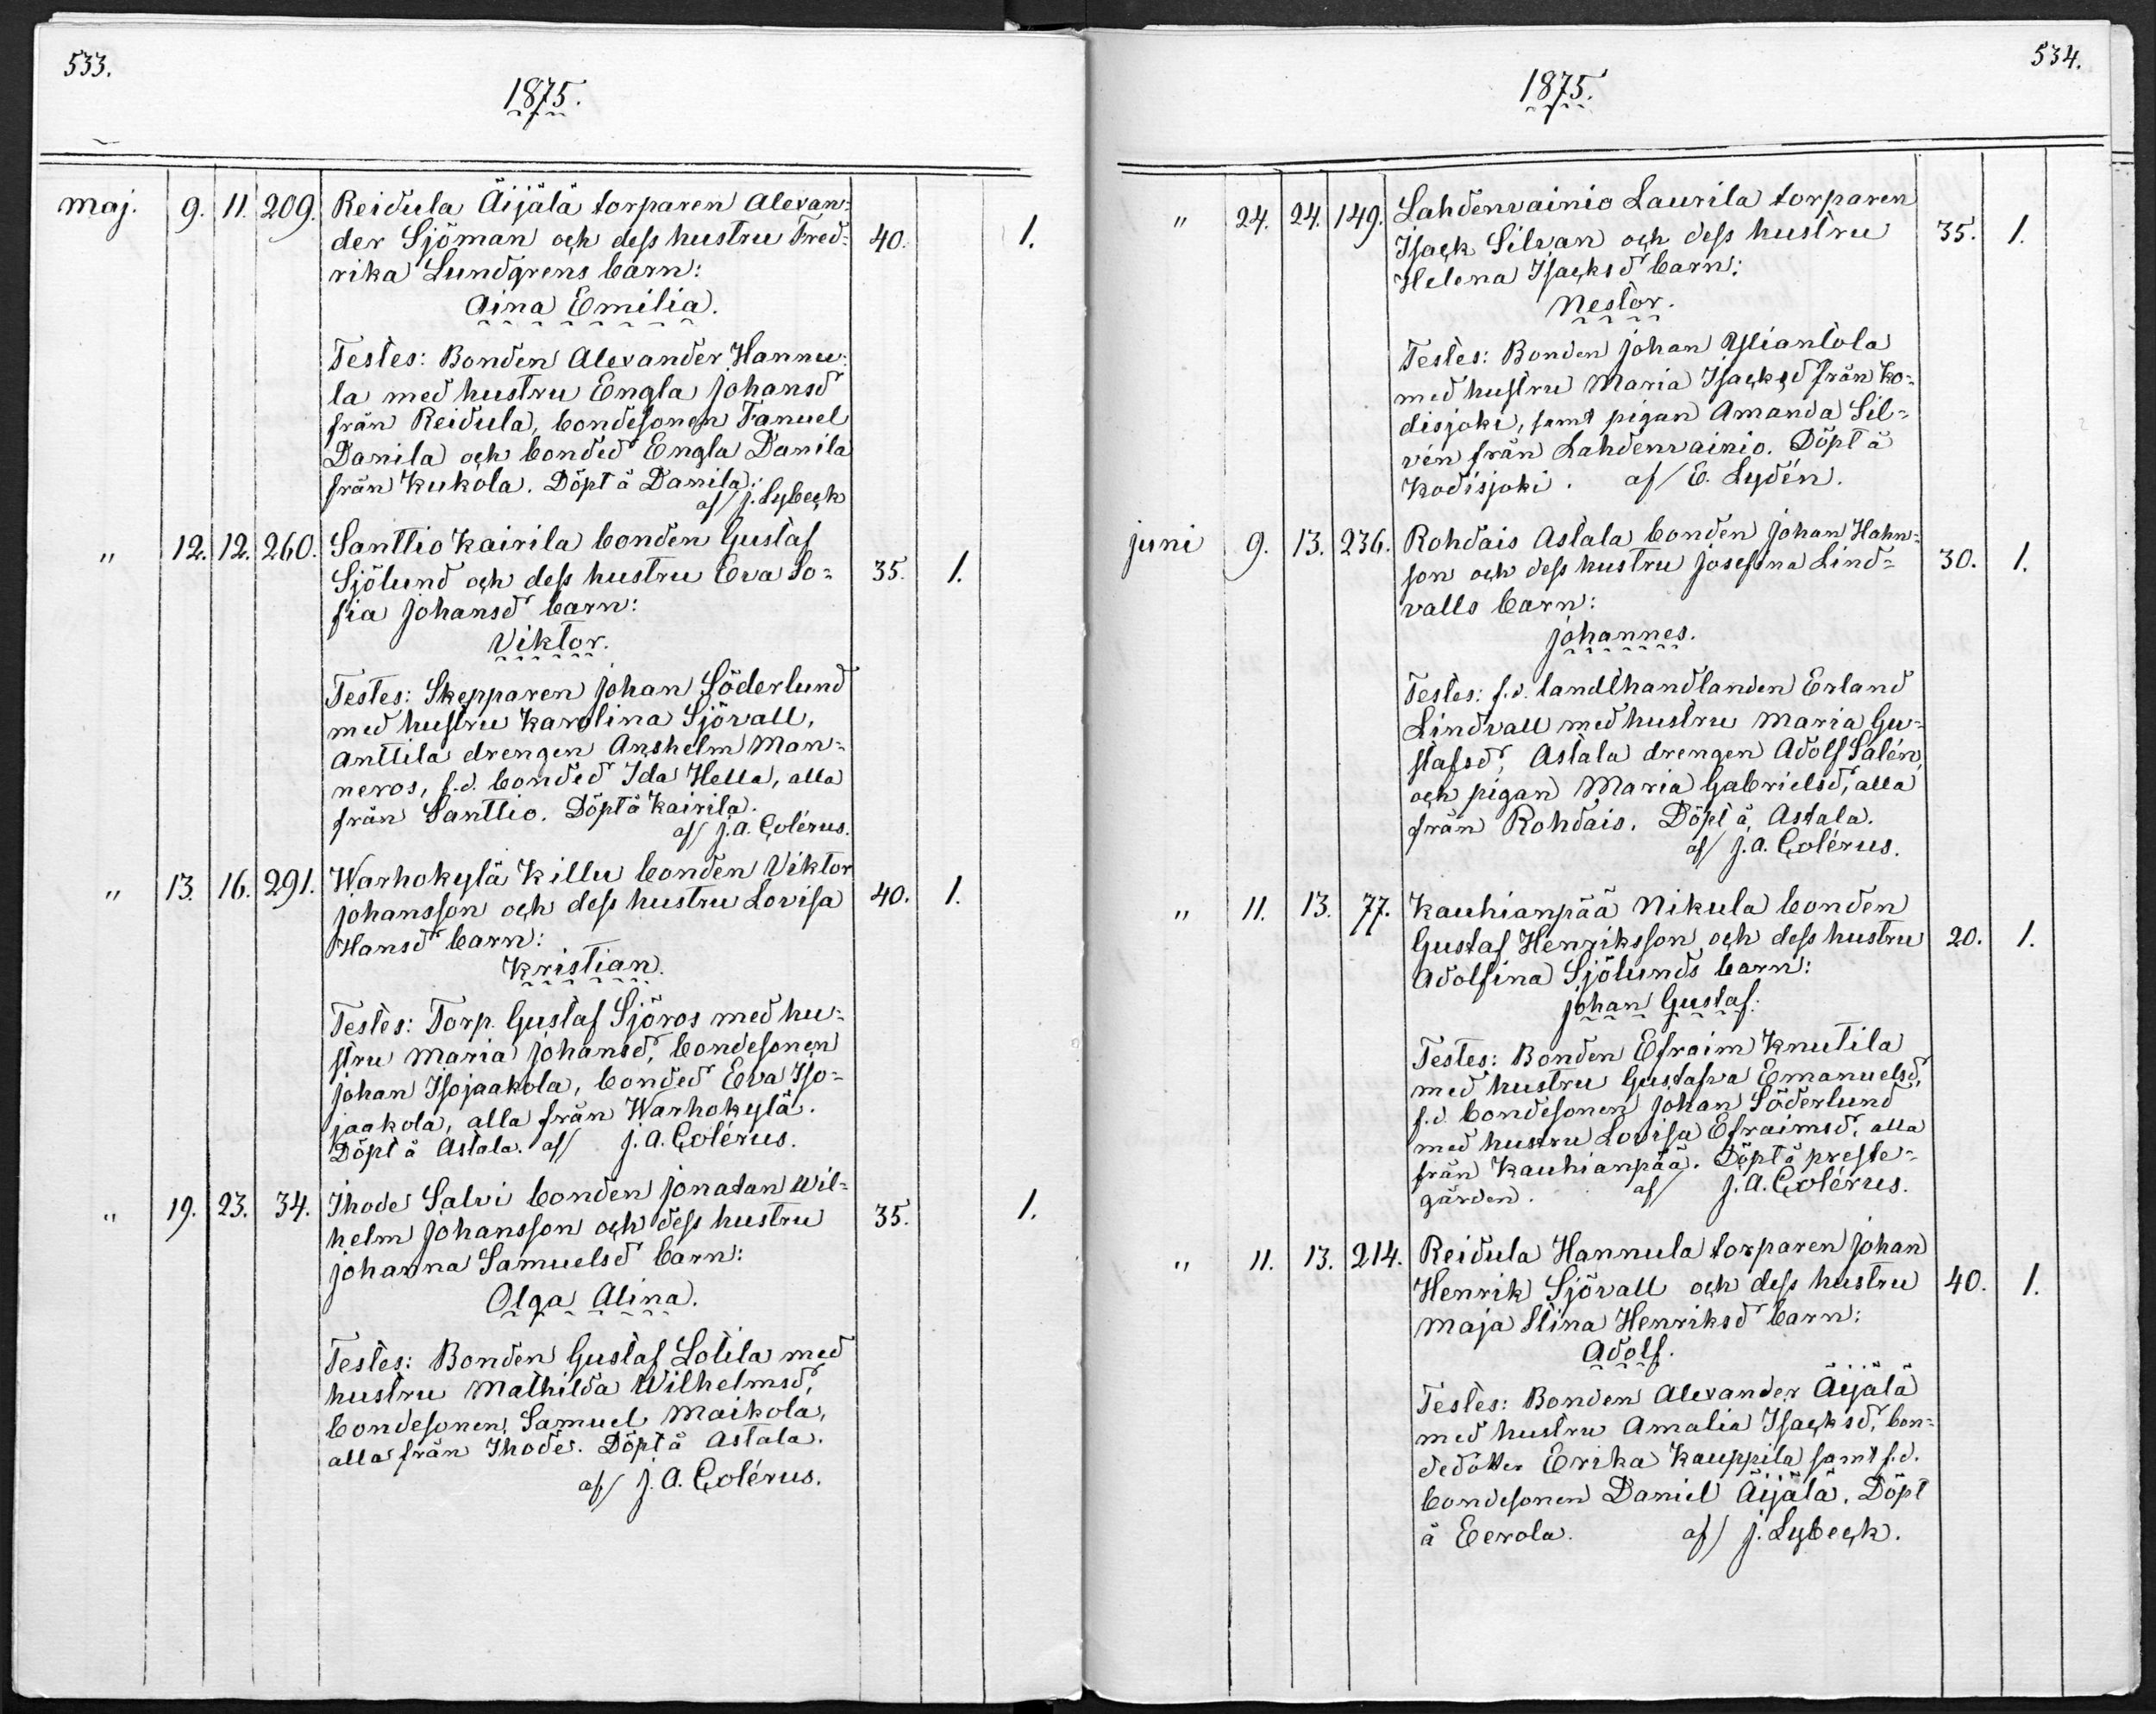 533.
1875.
Maj. 9. 11. 209. Reidula Äijälä torparen Alexan-
der Sjöman och dess hustru Fred- 40. 1.
rika Lundgrens barn:
Aina Emilia.
Testes: Bonden Alexander Hannu-
la med hustru Engla Johansd
från Reidula, bondesonen Fanuel
Danila och bonded Engla Danila
från Kukola. Döpt å Danila.
af/ J. Lybeck
" 12. 12. 260. Santtio Kairila bonden Gustaf
Sjölund och dess hustru Eva So- 35. 1.
fia Johansd barn:
Viktor.
Testes: Skepparen Johan Söderlund
med hustru Karolina Sjövall,
Anttila drengen Anshelm Man-
neros, f.d. bonded Ida Hella, alla
från Santtio. Döpt å Kairila.
af/ J. A. Colérus.
" 13. 16. 291. Warhokylä Killu bonden Viktor
Johansson och dess hustru Lovisa 40. 1.
Hansd barn:
Kristian.
Testes: Torp. Gustaf Sjöros med hu-
stru Maria Johansd, bondesonen
Johan Isojaakola, bonded Eva Iso-
jaakola, alla från Warhokylä.
Döpt å Astala. af/ J. A. Colérus.
" 19. 23. 34. Ihode Salvi bonden Jonatan Wil-
helm Johansson och dess hustru 35. 1.
Johanna Samuelsd barn:
Olga Alina.
Testes: Bonden Gustaf Lotila med
hustru Mathilda Wilhelmsd,
bondesonen Samuel Maikola,
alla från Ihode. Döpt å Astala.
af/ J. A. Colérus.
534.
1875.
" 24. 24. 149. Lahdenvainio Laurila torparen
Isack Silvan och dess hustru 35. 1.
Helena Isacksd barn:
Nestor.
Testes: Bonden Johan Yliantola
med hustru Maria Isacksd från Ko-
disjoki, samt pigan Amanda Sil-
vén från Lahdenvainio. Döpt å
Kodisjoki. af/ E. Lydén.
Juni 9. 13. 236. Rohdais Astala bonden Johan Hahn-
son och dess hustru Josefina Lind- 30. 1.
valls barn:
Johannes.
Testes: f.d. landthandlanden Erland
Lindvall med hustru Maria Gu-
stafsd, Astala drengen Adolf Salén,
och pigan Maria Gabrielsd, alla
från Rohdais. Döpt å Astala.
af/ J. A. Colérus.
" 11. 13. 77. Kauhianpää Nikula bonden
Gustaf Henriksson och dess hustru 20. 1.
Adolfina Sjölunds barn:
Johan Gustaf.
Testes: Bonden Efraim Knutila
med hustru Gustafva Emanuelsd,
f.d. bondesonen Johan Söderlund
med hustru Lovisa Efraimsd, alla
från Kauhianpää. Döpt å preste-
gården. af/ J. A. Colérus.
" 11. 13. 214. Reidula Hannula torparen Johan
Henrik Sjövall och dess hustru 40. 1.
Maja Stina Henriksd barn:
Adolf.
Testes: Bonden Alexander Äijälä
med hustru Amalia Isacksd, bon-
dedotter Erika Kauppila samt f.d.
bondesonen Daniel Äijälä. Döpt
å Eerola. af/ J. Lybeck.